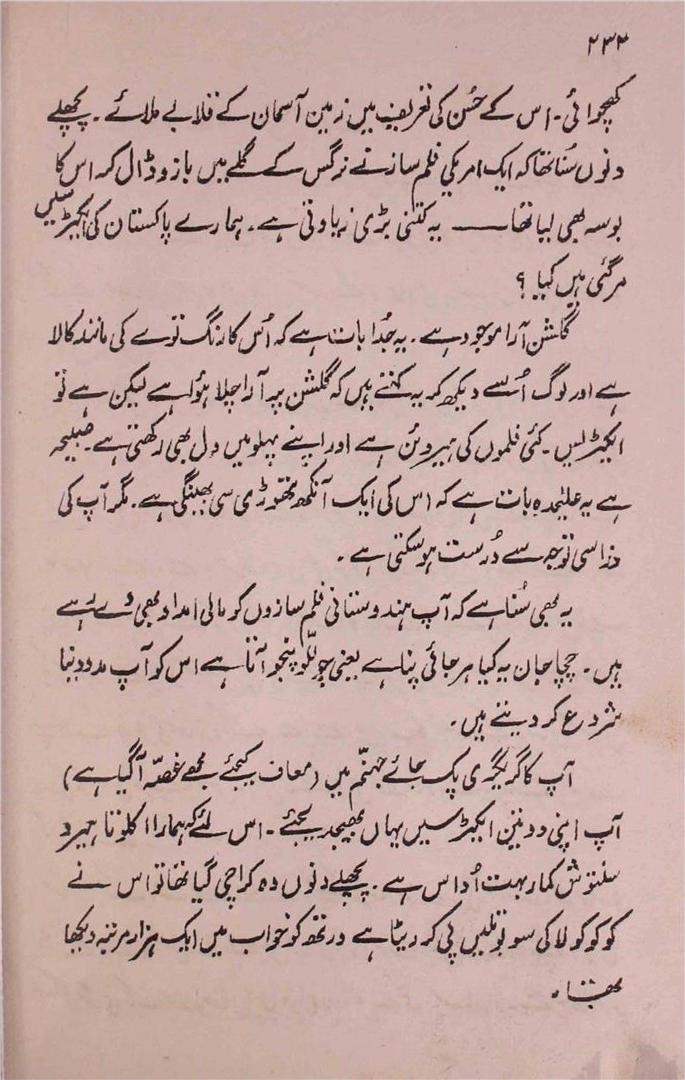 ۲۳۲
کھچوائی۔ اس کے حُسن کی تعریف میں زمین آسمان کے قلابے ملائے۔ پچھلے
دنوں سُنا تھا کہ ایک امریکی فلم ساز نے نرگس کے گلے میں بازو ڈال کر اس کا
بوسہ بھی لیا تھا —— یہ کتنی بڑی زیادتی ہے۔ ہمارے پاکستان کی ایکٹرسیں
مر گئی ہیں کیا ؟
گلشن آرا موجود ہے۔ یہ جُدا بات ہے کہ اُس کا رنگ توے کی مانند کالا
ہے اور لوگ اُسے دیکھ کر یہ کہتے ہیں کہ گلشن پہ آرا چلا ہوا ہے لیکن ہے تو
ایکٹرس۔ کئی فلموں کی ہیروئن ہے اور اپنے پہلو میں دل بھی رکھتی ہے۔ صبیحہ
ہے یہ علیٰحدہ بات ہے کہ اس کی ایک آنکھ تھوڑی سی بھینگی ہے۔ مگر آپ کی
ذرا سی توجہ سے دُرست ہو سکتی ہے۔
یہ بھی سُنا ہے کہ آپ ہندوستانی فلم سازوں کو مالی امداد بھی دے رہے
ہیں۔ چچا جان یہ کیا ہرجائی پنا ہے یعنی جو للّو پنجو آتا ہے اس کو آپ مدد دینا
شروع کر دیتے ہیں۔
آپ کا گریگری پک جائے جہنّم میں (معاف کیجئے مجھے غصّہ آگیا ہے)
آپ اپنی دو تین ایکٹرسیں یہاں بھیجدیجئے۔ اس لئے کہ ہمارا اکلوتا ہیرو
سنتوش کمار بہت اُداس ہے۔ پچھلے دنوں وہ کراچی گیا تھا تو اس نے
کوکوکولا کی سو بوتلیں پی کر ریٹا ہے ورتھ کو خواب میں ایک ہزار مرتبہ دیکھا
تھا۔